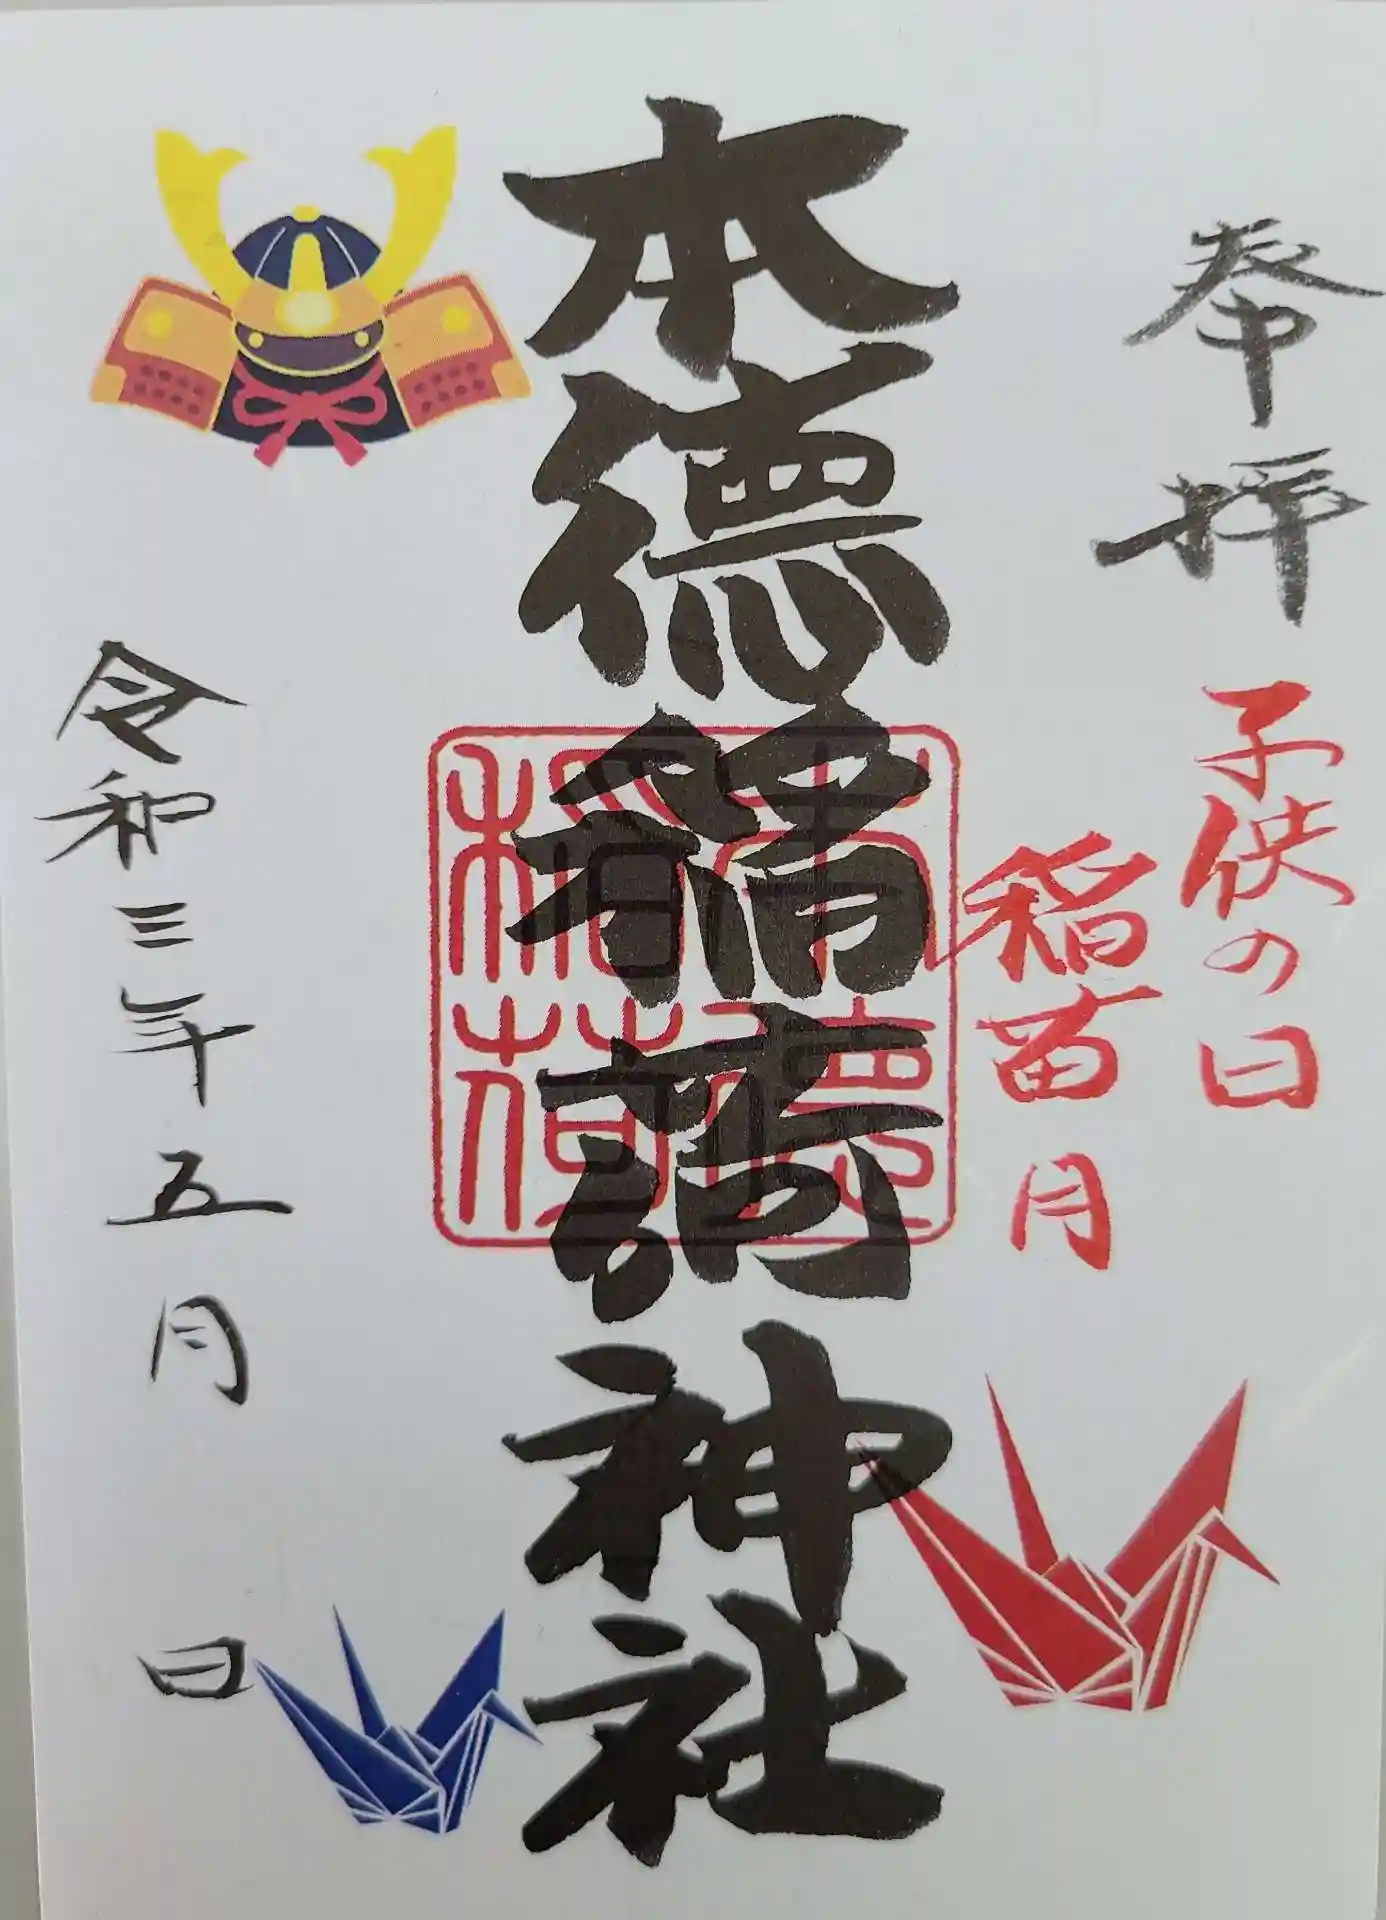 奉拝
子供の日
稲苗月
本徳稲荷神社
本徳
稲荷
令和三年五月 日